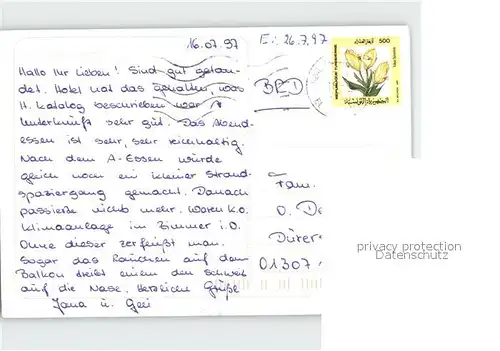 16.07.97
E: 26.7.97
500
Hallo Ihr Lieben! Sind gut gelan-
det. Hotel hat das gehalten, was
lt. Katalog beschrieben war.
Unterkunft sehr gut. Das Abend-
essen ist sehr, sehr reichhaltig.
Nach dem A-Essen wurde
gleich noch ein kleiner Strand-
spaziergang gemacht. Danach
passierte nichts mehr. Waren k.o.
Klimaanlage im Zimmer i.O.
Ohne dieser zerfleußt man.
Sogar das Rauchen auf dem
Balkon treibt einem den Schweiß
auf die Nase. Herzliche Grüße
Jana u.
BRD
Fam.
D. De
Dürer
01307
privacy protection
Datenschutz